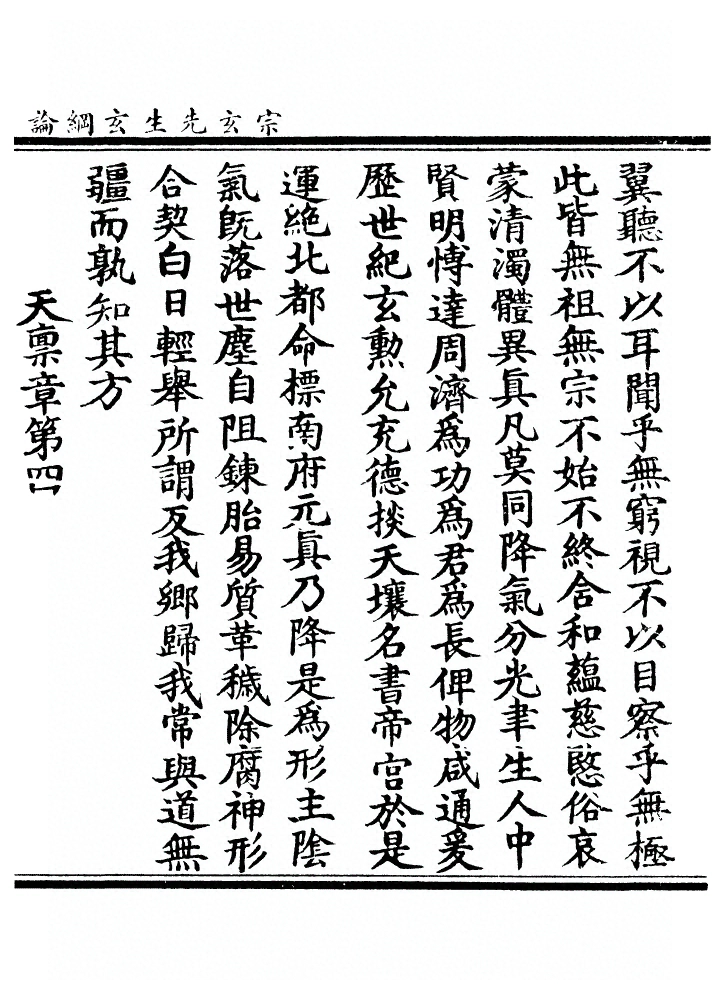 宗玄先生玄綱論
翼聽不以耳聞乎無窮視不以目察乎無極
此皆無祖無宗不始不終含和蘊慈愍俗哀
蒙清濁體異眞凡莫同降氣分光聿生人中
賢明博達周濟爲功爲君爲長俾物咸通爰
歷世紀玄勲允充德掞天壤名書帝宮於是
運絶北都命標南府元眞乃降是爲形主陰
氣旣落世塵自阻鍊胎易質革穢除腐神形
合契白日輕舉所謂反我鄉歸我常與道無
疆而孰知其方
天禀章第四